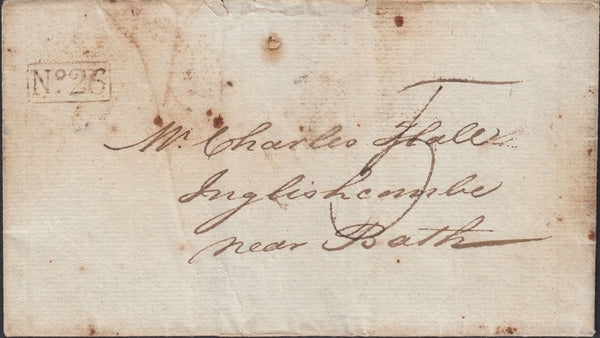 No. 26
Mr. Charles Hall
Inglishcombe
near Bath
5